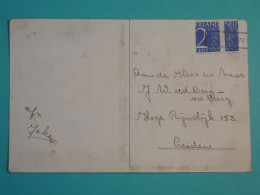 ERLAND
2
CENT
Aan de Heer en Mevr
J W v.d. Berg-
v.d. Berg
Hoge Rijndijk 153
Leiden